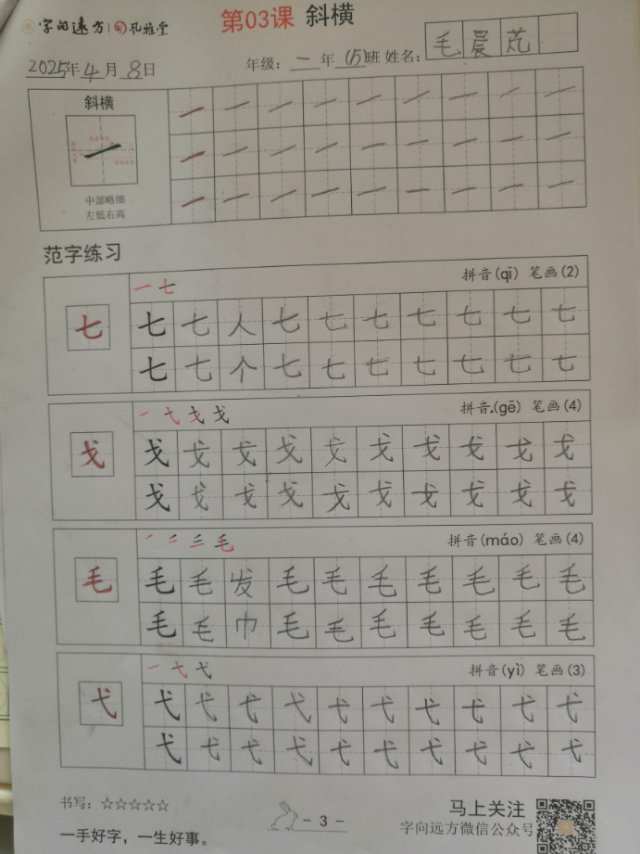 字向远方 孔雅堂
第03课 斜横
2025年4月8日 年级：二年(5)班 姓名：毛晨芃
斜横
中部略细
左低右高
范字练习
一 七 拼音(qī) 笔画(2)
七 七 七 人 七 七 七 七 七 七 七
七 七 个 七 七 七 七 七 七 七
拼音(gē) 笔画(4)
戈 戈 戈 戈 戈 戈 戈 戈 戈 戈 戈
戈 戈 戈 戈 戈 戈 戈 戈 戈 戈
毛 拼音(máo) 笔画(4)
毛 毛 毛 发 毛 毛 毛 毛 毛 毛 毛
毛 毛 巾 毛 毛 毛 毛 毛 毛 毛
弋 拼音(yì) 笔画(3)
弋 弋 弋 弋 弋 弋 弋 弋 弋 弋 弋
弋 弋 弋 弋 弋 弋 弋 弋 弋 弋
书写：☆☆☆☆☆
一手好字，一生好事。
- 3 -
马上关注
字向远方微信公众号